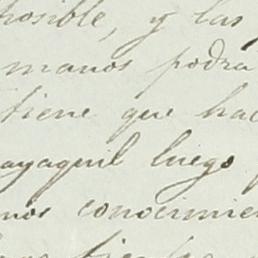 posible, y las
manos podra
tiene que hac
ayaquil luego
nos conocimie